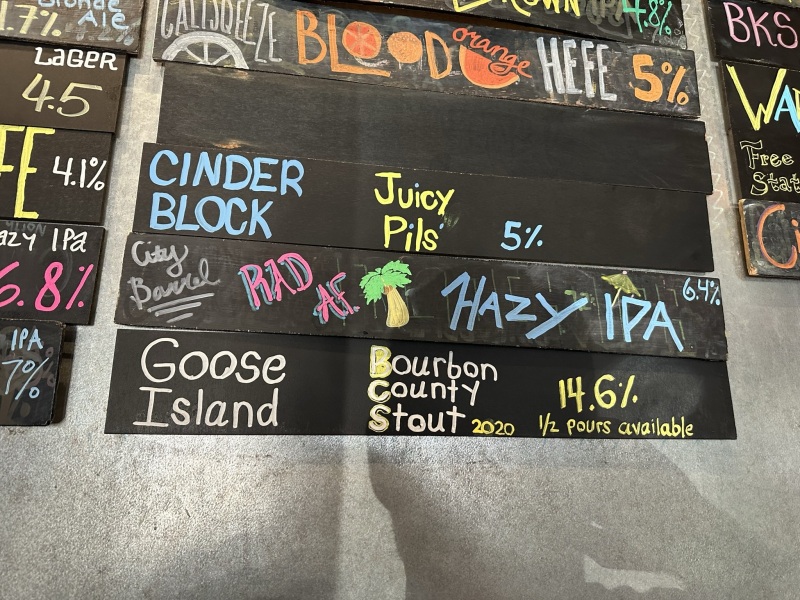 Blonde
Ale
1.7%
LAGER
4.5
FE 4.1%
azy IPA
6.8%
IPA
7%
4.8%
CALISQEEZE BLOOD orange HEFE 5%
CINDER
BLOCK
Juicy
Pils
5%
City
Barrel
RAD
AF
HAZY IPA 6.4%
Goose
Island
Bourbon
County
Stout 2020
14.6%
1/2 pours available
BKS
WA
Free
Stat
Ci